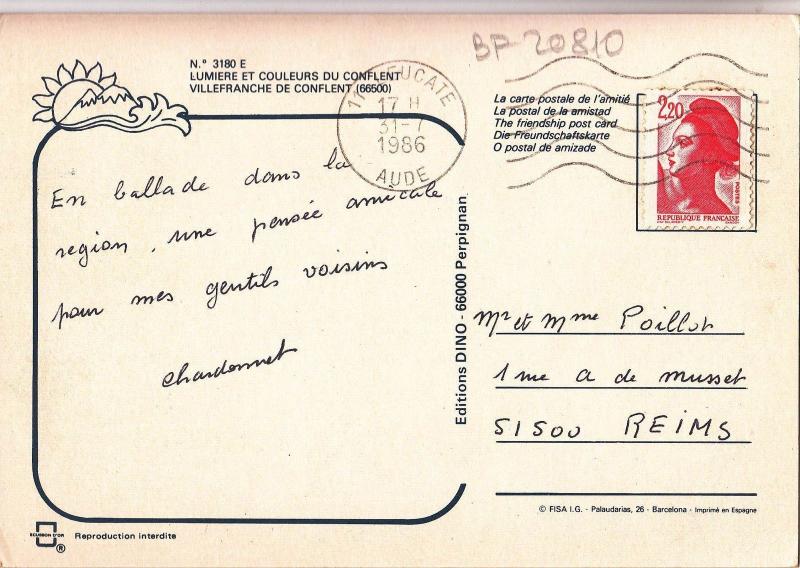 BP-20810
N.° 3180 E
LUMIERE ET COULEURS DU CONFLENT
VILLEFRANCHE DE CONFLENT (66500)
11 LEUCATE
17 H
31-7
1986
AUDE
La carte postale de l'amitié
La postal de la amistad
The friendship post card
Die Freundschaftskarte
O postal de amizade
2,20
POSTES
REPUBLIQUE FRANÇAISE
En ballade dans la
region, une pensée amicale
pour mes gentils voisins
chardonnet
Editions DINO - 66000 Perpignan
Mr et Mme Poillot
1 rue A de musset
51500 REIMS
© FISA I.G. - Palaudarias, 26 - Barcelona - Imprimé en Espagne
ECUSSON D'OR
®
Reproduction interdite